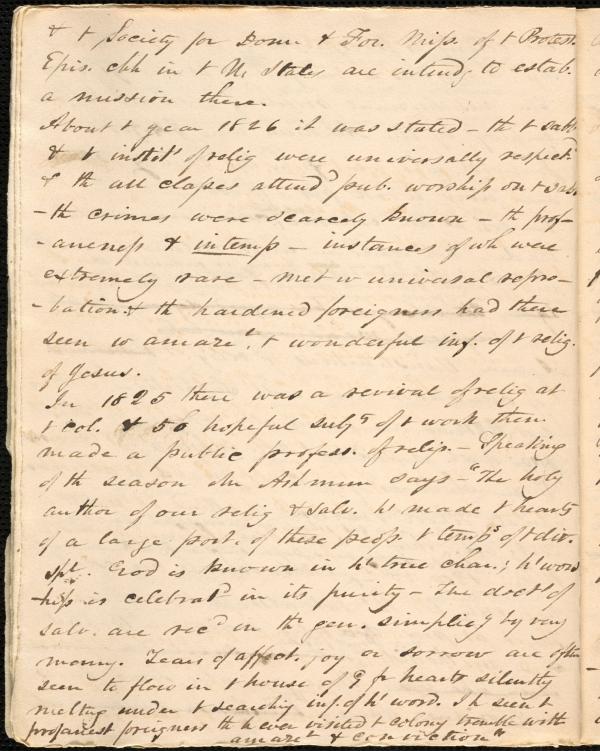 & t Society for Dom. & For. Miss. of t Protest.
Epis. chh in t U. States are intend. to estab.
a mission there.
About t year 1826 it was stated – th t sabb.
& t instit.s of relig were universally respect.d
& th all classes attend.d pub. worship on t sab.
– th crimes were scarcely known – th prof-
-aneness & intemp – instances of wh were
extremely rare – met w universal repro-
-bation. & th hardened foreigners had there
seen w amaze.t, t wonderful inf. of t relig.
of Jesus.
In 1825 there was a revival of relig at
t col. & 50 hopeful subj.s of t work then
made a public profess. of relig. – Speaking
of th season Mr Ashmun says – "The holy
author of our relig & salv. h.s made t hearts
of a large port. of these peop. t temp.s of t div.
spt. God is known in h.s true char.; h.s wor
ship is celebrat.d in its purity – The doct.s of
salv. are rec.d in th gen. simplic.y by very
many. Tears of affect. joy or sorrow are often
seen to flow in t house of G fr hearts silently
melting under t searching inf. of h.s word. I h seen t
profanest foreigners th h ever visited t colony tremble with
amaze.t & conviction"